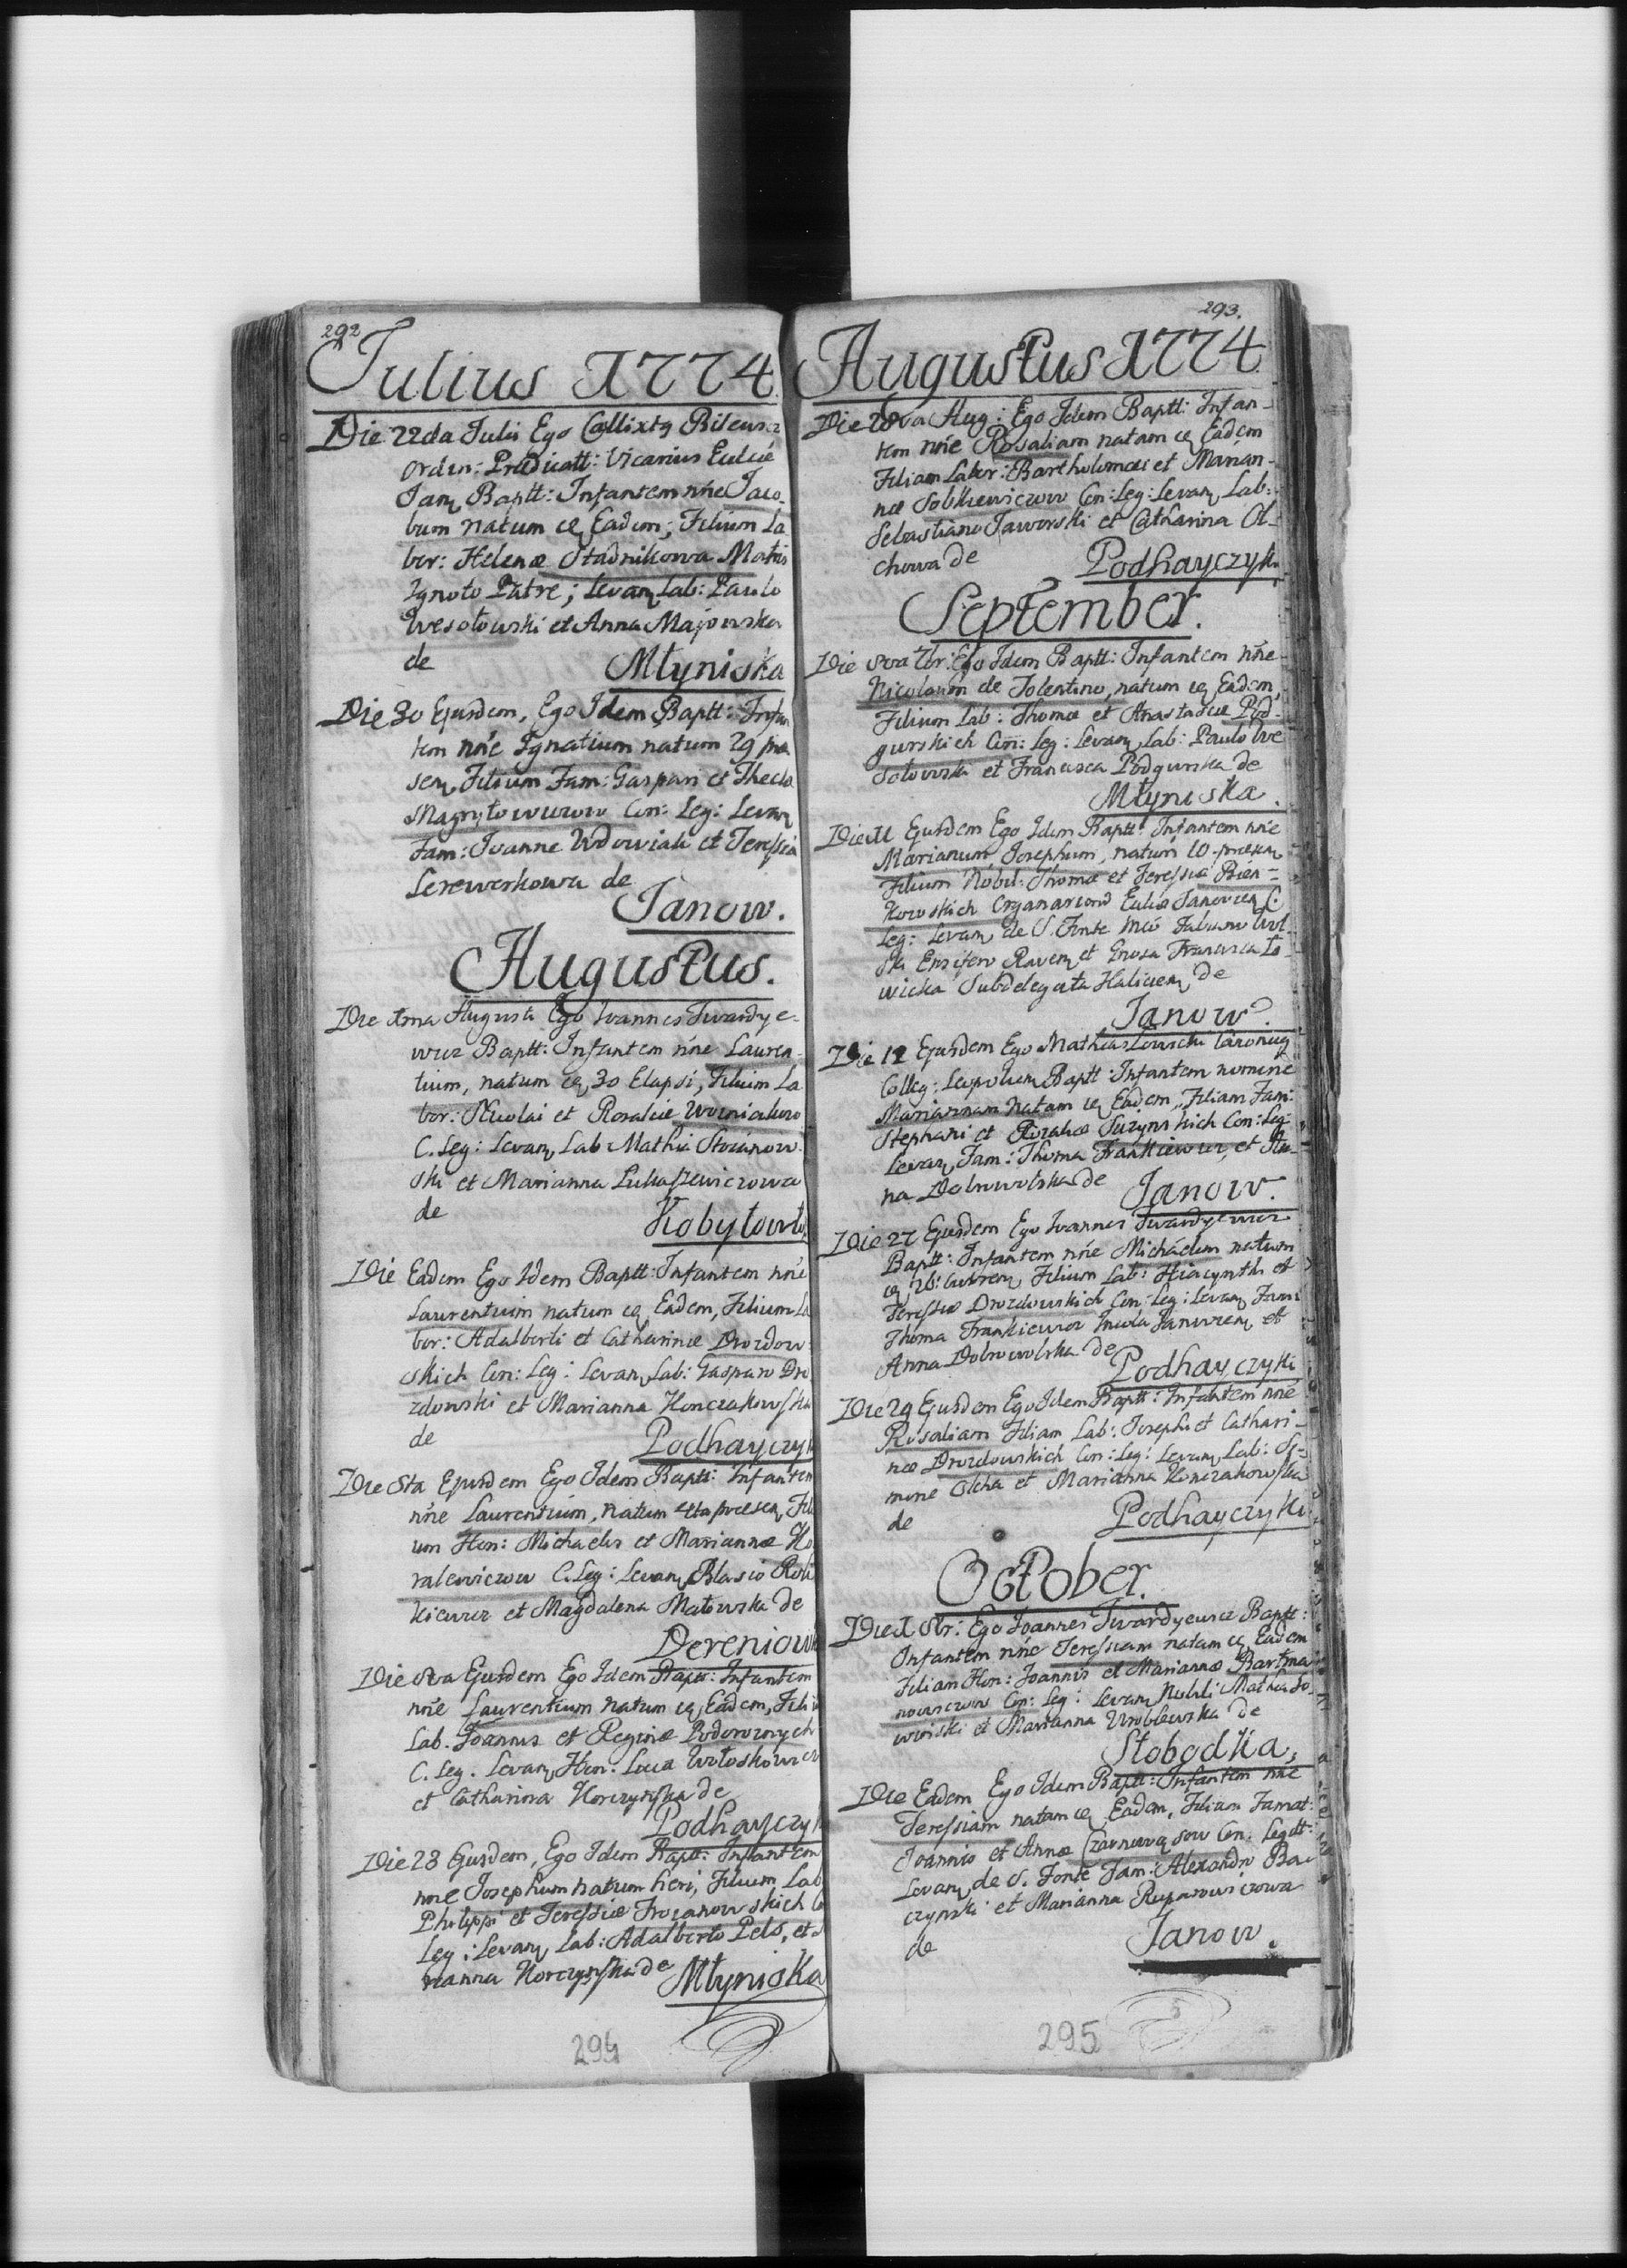 292
Julius 1774
Die 22da Julii Ego Callixtq
Ordin: Prædicatt: Vicarius Eccliæ
Janq Baptt: Infantem nŕne Jaco-
bum natum eq Eadem; Filium La
bor: Helenæ Stadnikowa Matris
Ignoto Patre; Levanq Lab: Paulo
Wesołowski et Anna Majowska
de Młyniska
Die 30 Ejusdem, Ego Idem Baptt: Infan
tem nŕne Ignatium natum 29 præ
senq Filium Fam: Gaspari et Thecla
Con: Leg: Levanq
Fam: Joanne Wdowiak et Teressia
de
Janow.
Augustus.
Die 1ma Augusti Ego Ioannes Twardye-
wicz Baptt: Infantem nŕne Lauren-
tium, natum eq 30 Elapsi, Filium La
bor: Nicolai et Rosaliæ Wozniakow
C. Leg: Levanq Lab Mathia Stoianow-
ski et Marianna Lukaszewiczowa
de Kobyłowło
Die Eadem Ego Idem Baptt: Infantem nŕne
Laurentium natum eq Eadem, Filium La
bor: Adalberti et Catharinæ Drozdow-
skich Con: Leg: Levanq Lab: Gasparo Dro
zdowski et Marianna Konczakowska
de Podhayczyk
Die 5ta Ejusdem Ego Idem Baptt: Infantem
nŕne Laurentium, natum 4ta præsenq Fili
um Hon: Michaelis et Mariannæ Ko
ralewiczow C. Leg: Levanq Blasio
et Magdalena Małowska de
Dereniow
Die 8va Ejusdem Ego Idem Baptt: Infantem
nŕne Laurentium natum eq Eadem, Filiu
Lab. Joannis et Reginæ Podoroznych
C. Leg. Levanq Hon: Luca Wołoskowicz
et Catharina Korczynska de
Podhayczyk
Die 23 Ejusdem, Ego Idem Baptt: Infantem
nŕne Josephum natum heri, Filium Lab
Philippi et Teressiæ Trocanowskich Co
Leg: Levanq Lab: Adalberto Pelo, et
rianna Korczynska de Młyniska
294
293.
Augustus 1774
Die 28va Aug: Ego Idem Baptt: Infan-
tem nŕne Rosaliam natam eq Eadem
Filiam Labor: Bartholomæi et Marian-
næ Sobkiewiczow Con: Leg: Levanq Lab:
Sebastiano Jaworski et Catharina Ol-
chowa de Podhayczyk
September.
Die 8va 7br: Ego Idem Baptt: Infantem nŕne
Nicolaum de Tolentino, natum eq Eadem,
Filium Lab: Thomæ et Anastasiæ Pod-
gurskich Con: Leg: Levanq Lab: Paulo We
sołowski et Francisca Podgurska de
Młyniska.
Die 11 Ejusdem Ego Idem Baptt: Infantem nŕne
Marianum Josephum, natum 10 præsenq
Filium Nobil: Thomæ et Teressiæ Bien-
kowskich Organariorq Eccliæ Janovienq C.
Leg: Levanq de S. Fonte
Ensifero Ravenq et Gnosa Francisca Ło
wicka Subdelegata Halicienq de
Janow.
Die 12 Ejusdem Ego Mathias Łowicki Canonicq
Colleg: Leopolienq Baptt: Infantem nomine
Mariannam natam eq Eadem, Filiam Fam:
Stephani et Rozaliæ Suzynskich Con: Leg
Levanq Fam: Thoma Frankiewicz, et An-
na Dobrowolska de Janow.
Die 27 Ejusdem Ego Ioannes Twardyewicz
Baptt: Infantem nŕne Michaelem natum
eq 26 currenq Filium Lab: Hiacynthi et
Teressiæ Drozdowskich Con: Leg: Levanq Fam:
Thoma Frankiewicz Incola Janovienq et
Anna Dobrowolska de Podhayczyki
Die 29 Ejusdem Ego Idem Baptt: Infantem nŕne
Rosaliam Filiam Lab: Josephi et Cathari-
næ Drozdowskich Con: Leg: Levanq Lab: Si-
mone Olcha et Marianna Konczakowska
de Podhayczyki
October.
Die 1 8br: Ego Joannes Twardyewicz Baptt:
Infantem nŕne Teressiam natam eq Eadem
Filiam Hon: Joannis et Mariannæ Bartma-
nowiczow Con: Leg: Levanq Nobili Mathia So-
wiński et Marianna Wroblewska de
Słobodka,
Die Eadem Ego Idem Baptt: Infantem nŕne
Teressiam natam eq Eadem, Filiam Famat:
Joannis et Annæ Con: Legitt:
Levanq de S. Fonte Fam: Alexandro Ba-
czynski et Marianna
de Janow.
295